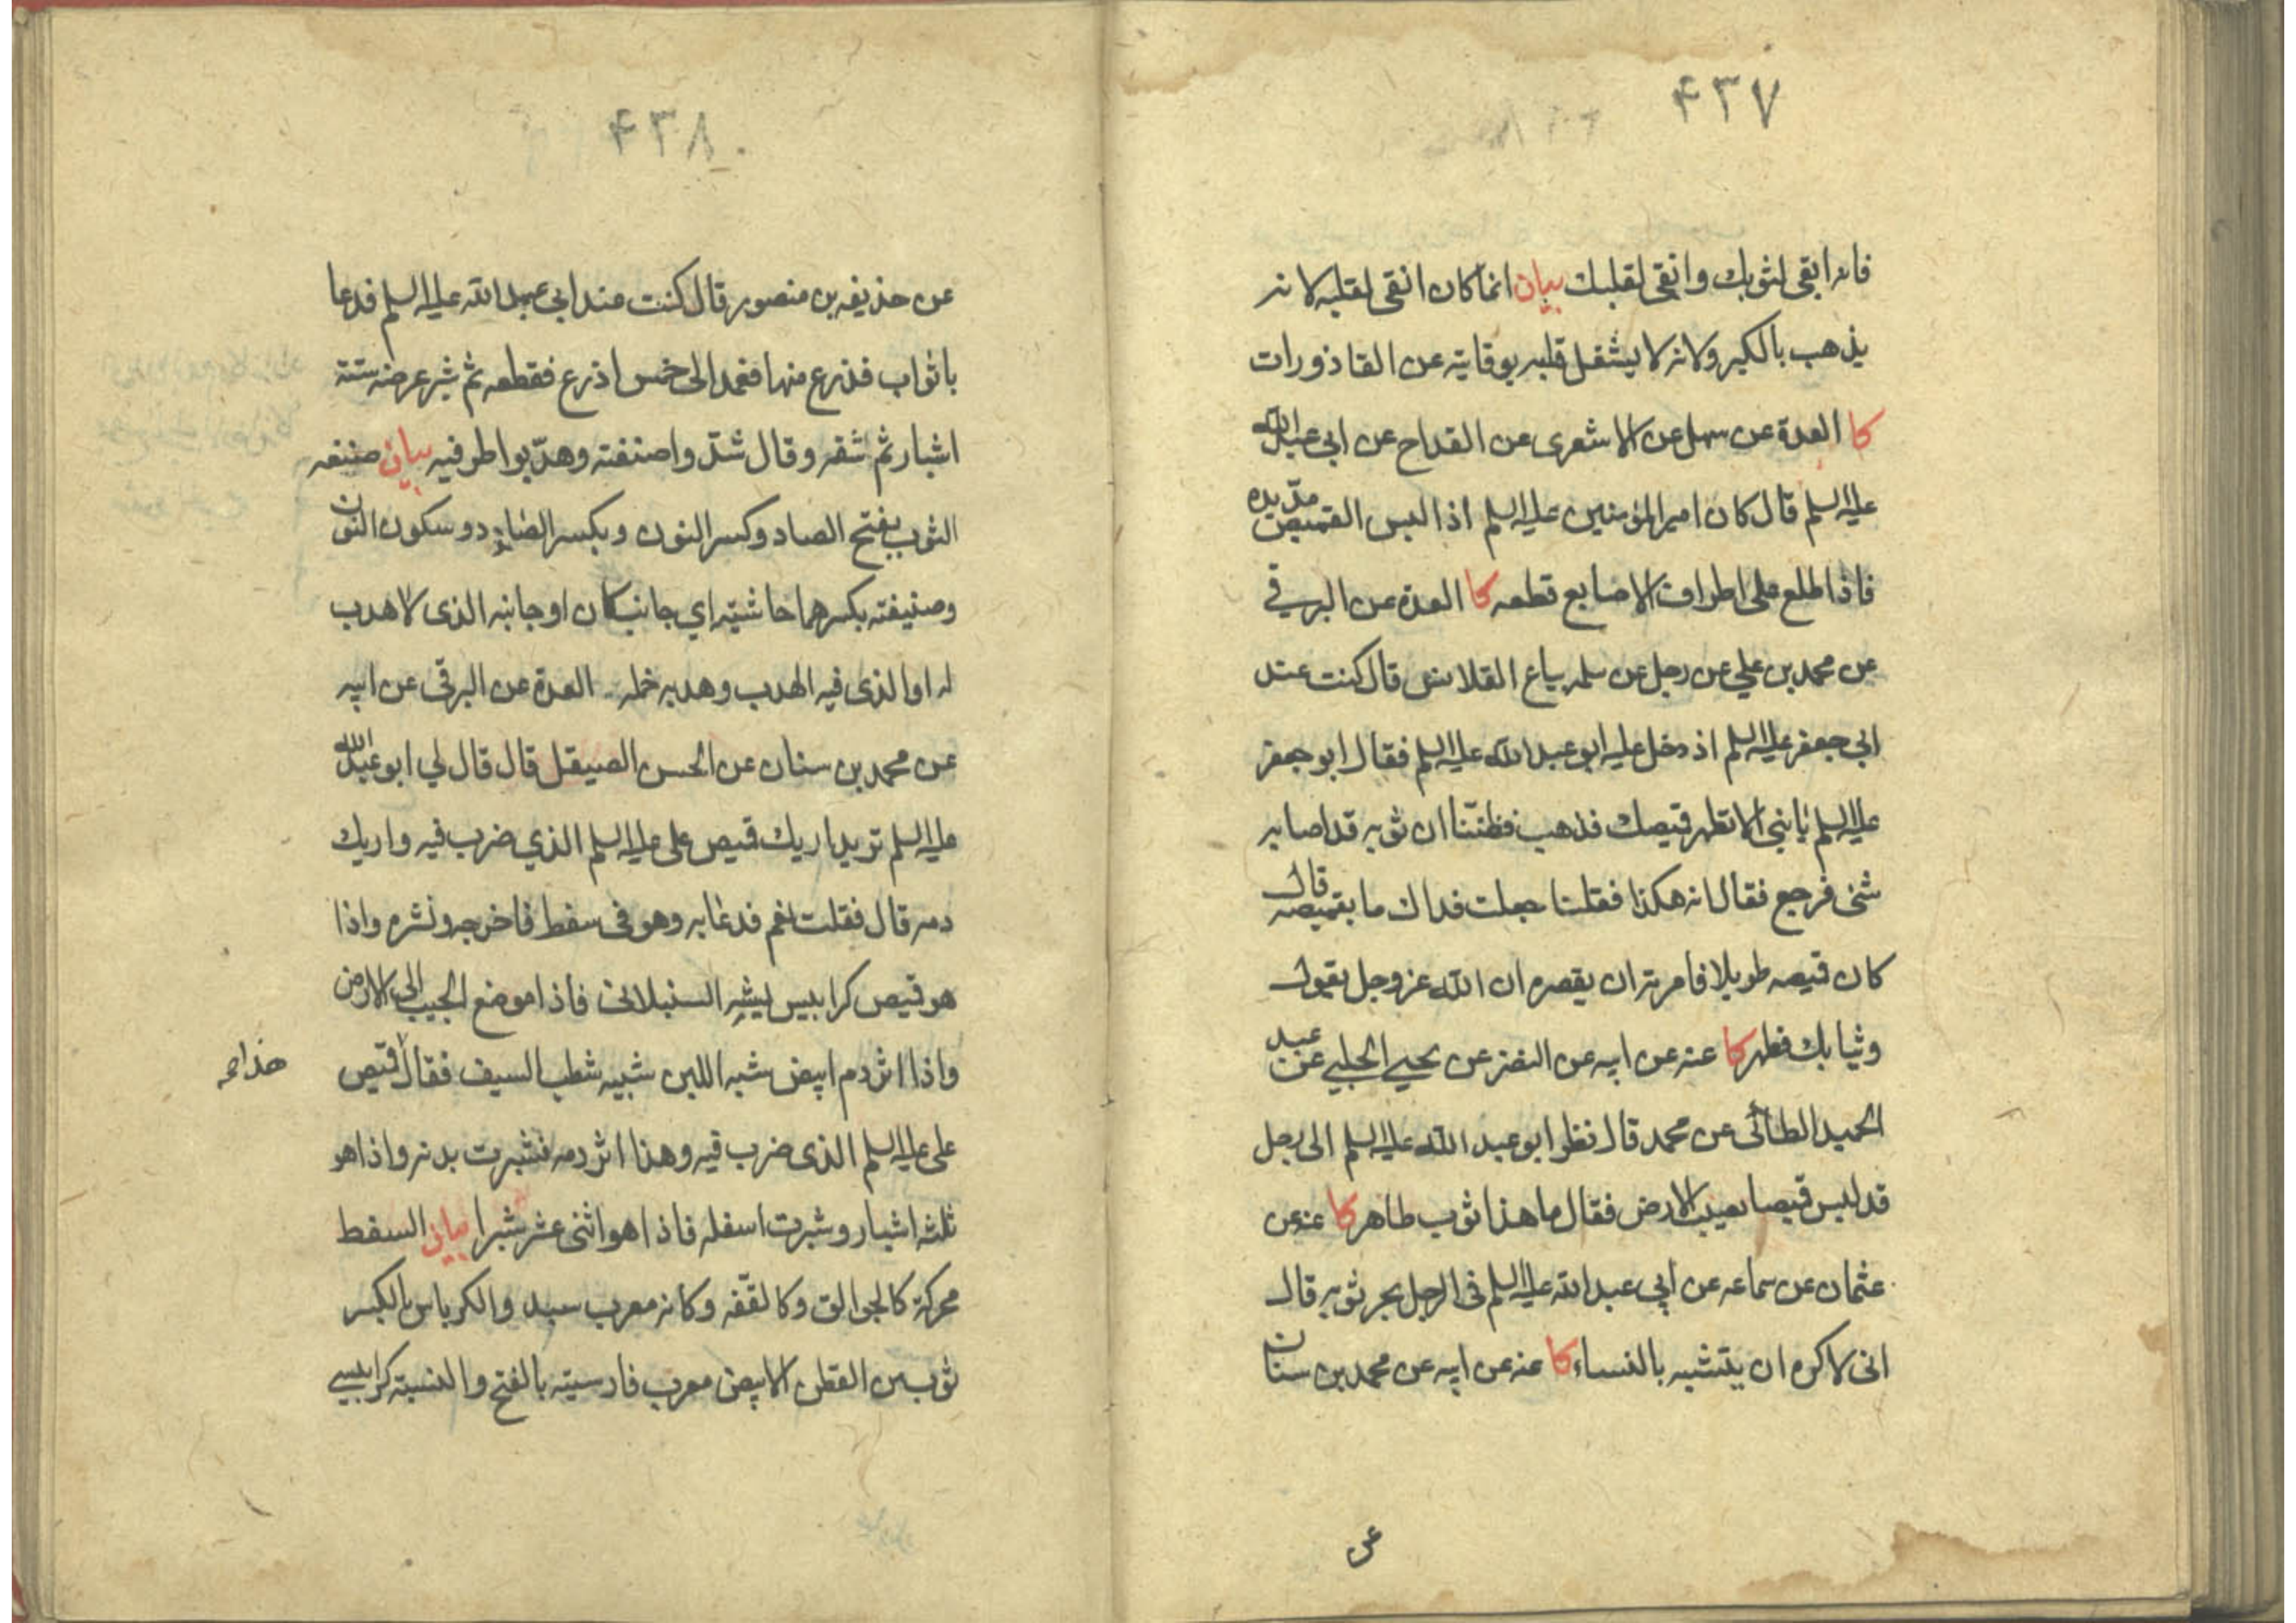 ۴۳۷
فانه ابقى لثوبك وانقى لقلبك بيان انما كان انقى لقلبه لانه
يذهب بالكبر ولانه لا يشغل قلبه بوقايته عن القاذورات
كا العدة عن سهل عن الاشعرى عن القداح عن ابي عبد الله
عليه السلم قال كان امير المؤمنين عليه السلم اذا لبس القميص مدّ يده
فاذا طلع على اطراف الاصابع قطعه كا العدة عن البرقي
عن محمد بن علي عن رجل عن سلمه بياع القلانس قال كنت عند
ابي جعفر عليه السلم اذ دخل عليه ابو عبد الله عليه السلم فقال ابو جعفر
عليه السلم يا بني الا تطهر قميصك فذهب فظننّا ان ثوبه قد اصابه
شئ فرجع فقال انه هكذا فقلنا جعلت فداك ما بقميصه قال
كان قميصه طويلا فامرته ان يقصره ان الله عز وجل يقول
وثيابك فطهر كا عنه عن ابيه عن النضر عن يحيى الحلبي عن عبد
الحميد الطائى عن محمد قال نظر ابو عبد الله عليه السلم الى رجل
قد لبس قميصا يصيب الارض فقال ما هذا ثوب طاهر كا عنه عن
عثمان عن سماعه عن ابي عبد الله عليه السلم فى الرجل يجر ثوبه قال
انى لاكره ان يتشبه بالنساء كا عنه عن ابيه عن محمد بن سنان
عن
۴۳۸
عن حذيفه بن منصور قال كنت عند ابي عبد الله عليه السلم فدعا
باثواب فذرع منها فعمد الى خمس اذرع فقطعه ثم شبر عرضه ستة
اشبار ثم شقه وقال شدّوا صنفته وهدّبوا طرفيه بيان صنفه
الثوب بفتح الصاد وكسر النون وبكسر الصاد وسكون النون
وصنيفته بكسرهما حاشيته اي جانب كان او جانبه الذى لا هدب
له او الذى فيه الهدب وهدبه خمله العدة عن البرقى عن ابيه
عن محمد بن سنان عن الحسن الصيقل قال قال لي ابو عبد الله
عليه السلم تريد اريك قميص على عليه السلم الذي ضرب فيه واريك
دمه قال فقلت نعم فدعا به وهو فى سفط فاخرجه ونشره واذا
هو قميص كرابيس يشبه السنبلانى فاذا موضع الجيب الى الارض
واذا اثر دم ابيض شبه اللبن شبيه شطب السيف فقال قميص
هذا صح
على عليه السلم الذى ضرب فيه وهذا اثر دمه فشبرت بدنه واذا هو
ثلثه اشبار وشبرت اسفله فاذا هو اثنى عشر شبرا بيان السفط
محركة كالجوالق وكالقفّه وكانه معرب سبد والكرباس بالكسر
ثوب من القطن الابيض معرب فارسيته بالفتح والنسبة كرابيسي